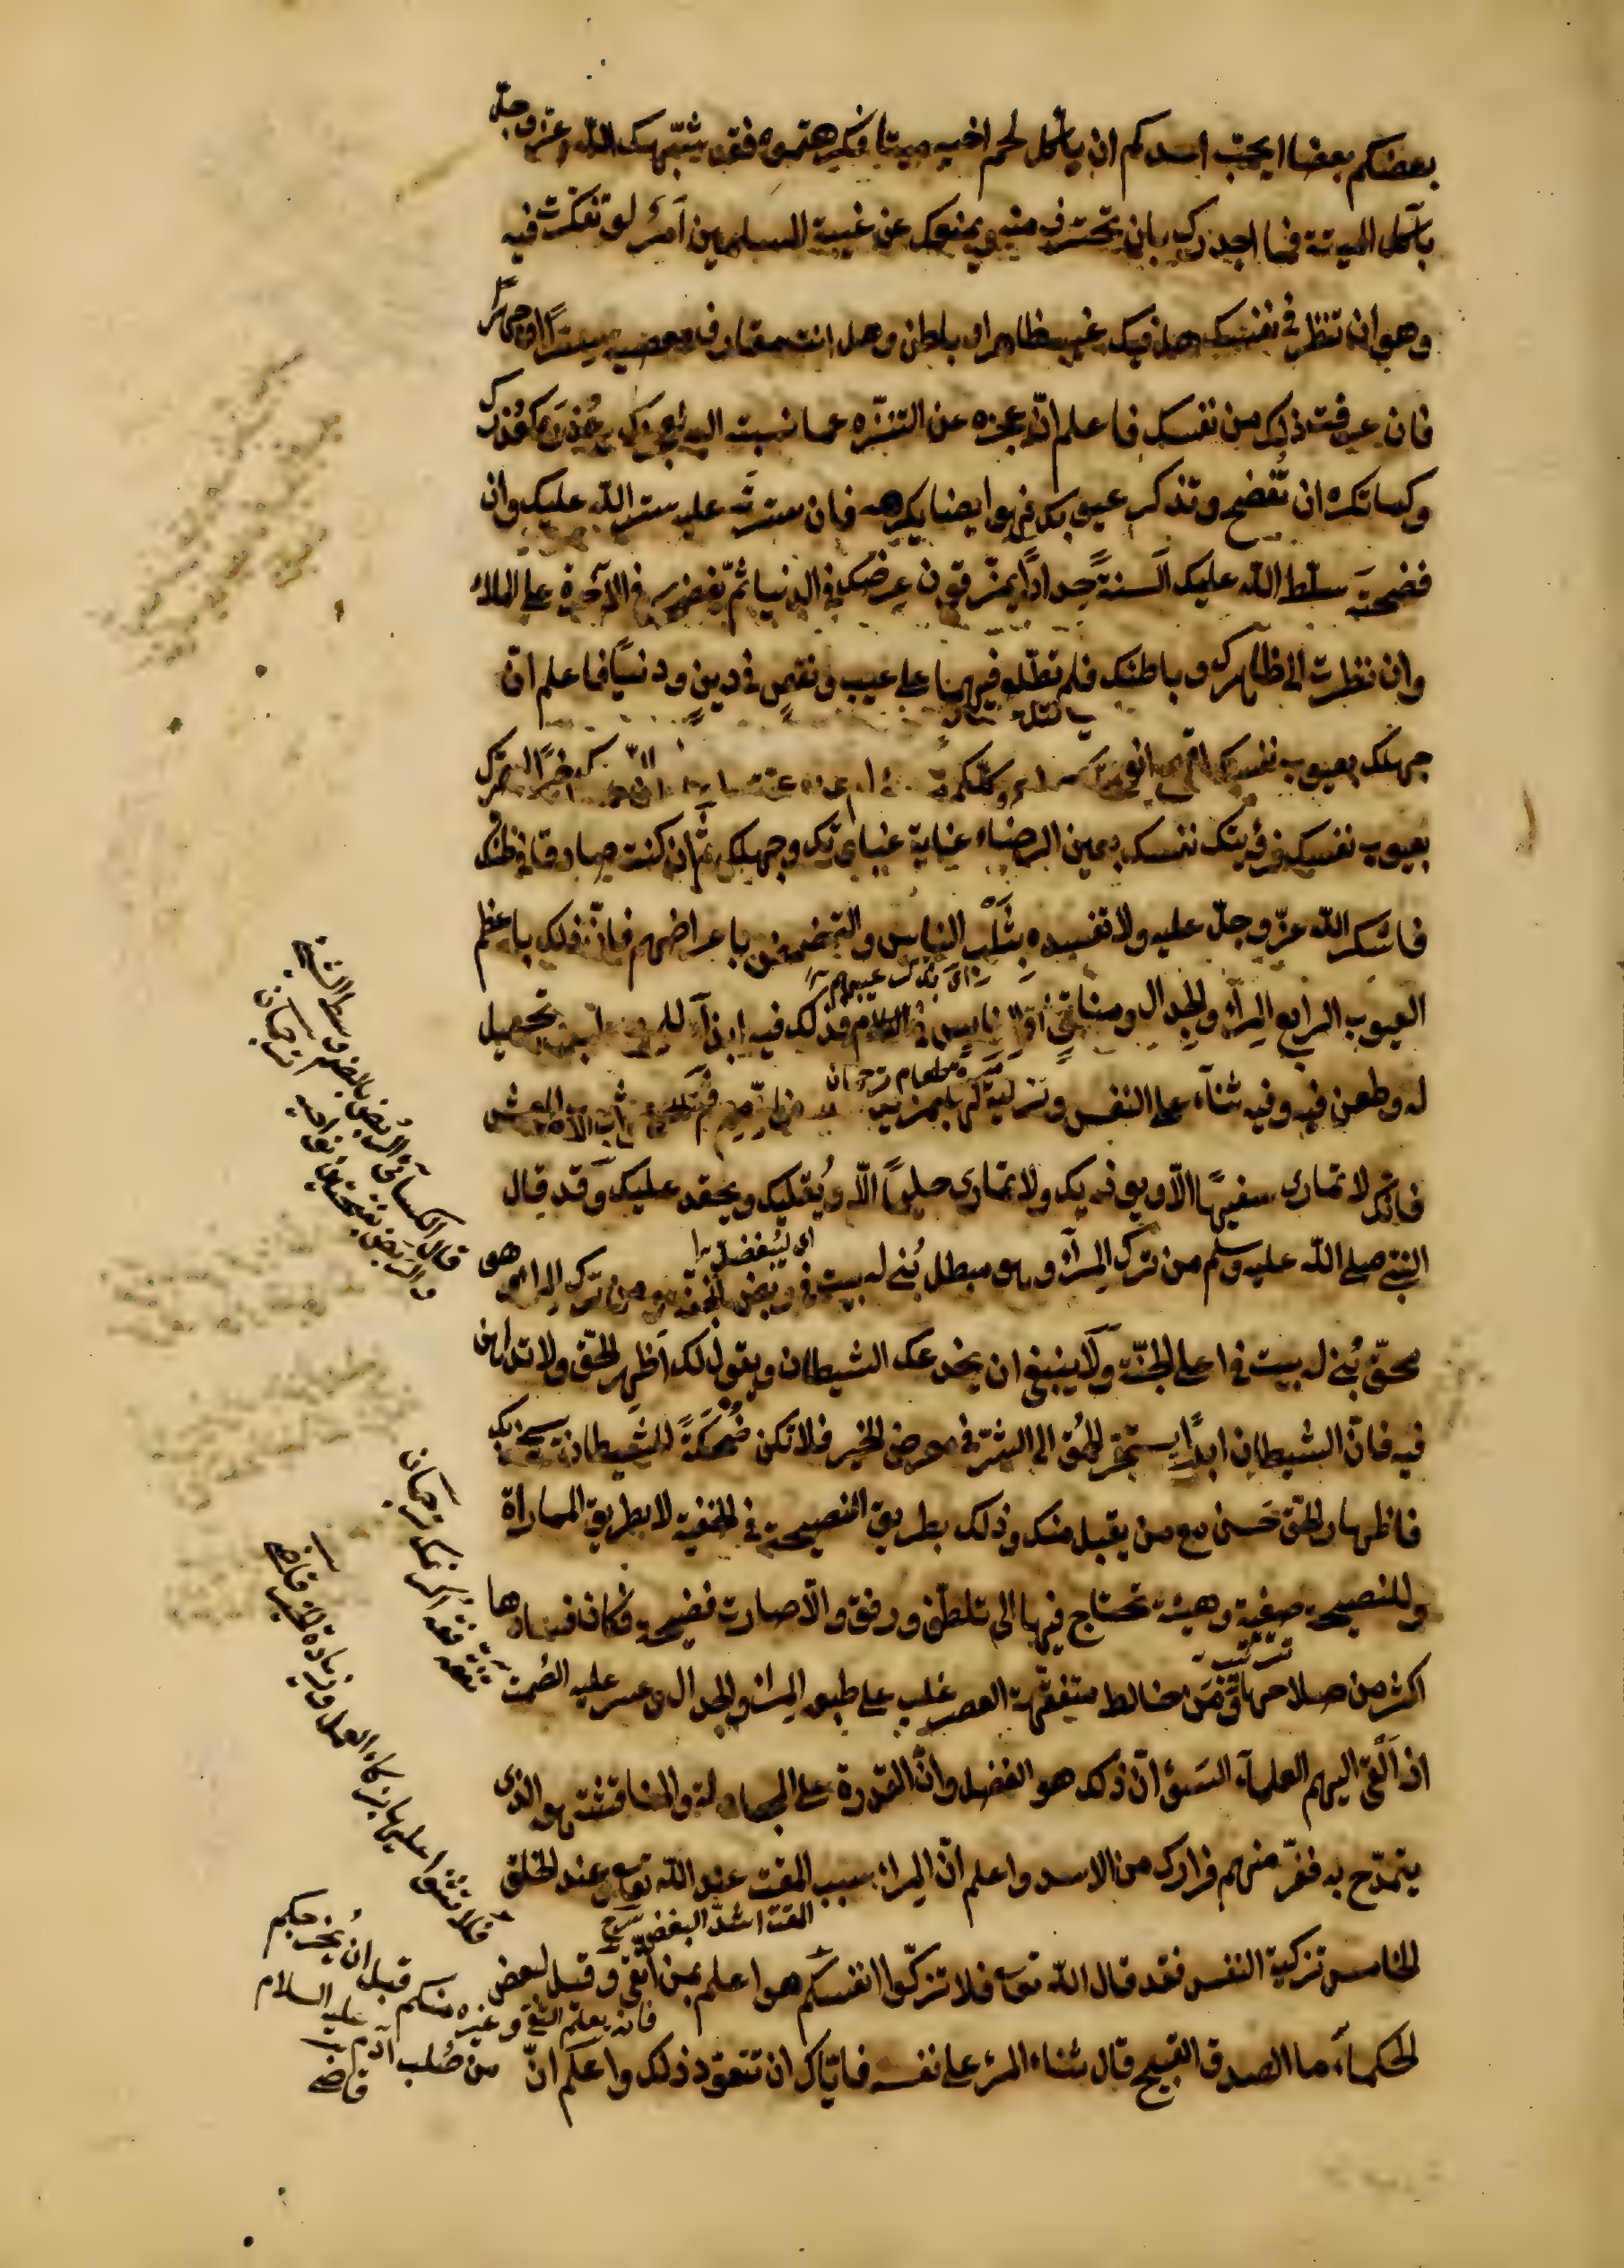 بعضكم بعضا ايحبّ احدكم ان يأكل لحم اخيه ميتا فكرهتموه فقد شبّهك اللّه عزّ وجلّ
بآكل الميتة فما اجدرك بان تحترز منه ويمنعك عن غيبة المسلمين امرٌ لو تفكرت فيه
وهو ان تنظر في نفسك هل فيك عيب ظاهر او باطن وهل انت مقارف معصية سرّا او جهرًا
فان عرفت ذلك من نفسك فاعلم انّ عجزه عن التنزّه عما نسبته اليه كعجزك وعُذرَه كعُذرك
وكما تكره ان تُفضح وتذكر عيوبك فهو ايضا يكرهه فان سترتَه عليه ستر اللّه عليك وان
فضحتَه سلّط اللّه عليك اَلسنةً حِدادًا يمزّقون عِرضك في الدنيا ثمّ يفضحك في الآخرة على الملاء
وان نظرت الى ظاهرك وباطنك فلم تطّلع فيهما على عيب ونقص في دينٍ ودنيًا فاعلم انّ
جهلك بعيوب نفسك اقبح انواع
بعيوب نفسك فرؤيتك نفسك بعين الرضاء غاية غباوتك وجهلك ثمّ ان كنت صادقا في ظنك
فاشكر اللّه عزّ وجلّ عليه ولا تفسده بثَلْب الناس والتمضمض باعراضهم فانّ ذلك باعظم
العيوب الرابع المِرآء والجدال ومناقشة الناس في الكلام فذلك فيه ايذآء للمخاطب وتجهيل
له وطعن فيه وفيه ثنآء على النفس وتزكية لها بمزيد
فانّك لا تمارى سفيهًا الّا ويوذيك ولا تمارى حليمًا الّا ويُقليك ويحقد عليك وقد قال
اى يبغضك
النبيّ صلى اللّه عليه وسلم من ترك المِرآء وهو مبطل بُنى له بيت في ربض الجنّة ومن ترك المراء وهو
محقّ بُنى له بيت في اعلى الجنّة ولا ينبغى ان يخدعك الشيطان ويقول لك اَظهِر الحقّ ولا تداهن
فيه فانّ الشيطان ابدًا يستجرّ الحُمق الى الشرّ في معرض الخير فلا تكن ضُحكَةً للشيطان يسخر بك
فاظهار الحقّ حَسن مع من يقبل منك وذلك بطريق النصيحة في الخفية لا بطريق المماراة
وللنصيحة صيغة وهيئة تحتاج فيها الى تلطّف ورفق والّا صارت فضيحة وكان فسادها
اكثر من صلاحها ومَن خالط متفقّهة العصر غلب على طبعه المِراء والجدال وعسر عليه الصُمت
اذ اَلقى اليهم العلماء السَوء انّ ذلك هو الفضل وانّ القدرة على المجادلة والمناقشة هو الذى
يتمدّح به ففرّ منهم فرارك من الاسد واعلم انّ المِراء سبب المقت عند اللّه تع وعند الخلق
المقت اشدّ البغض
الخامس تزكية النفس فقد قال اللّه تع فلا تزكّوا انفسكم هو اعلم بمن اتّقى وقيل لبعض
الحكماء ما الصدق القبيح قال ثناء المرء على نفسه فايّاك ان تتعوّد ذلك واعلم انّ
قال الكسائى الرُبض بالضم وسط الشئ
والرَبض بفتحتين نواحيه ترجمان
فلا تثنوا عليها بزكاء العمل وزيادة الخير
فانه يعلم التقى وغيره منكم قبل ان يُخرجكم
من صُلب آدم عليه السلام
قاضى